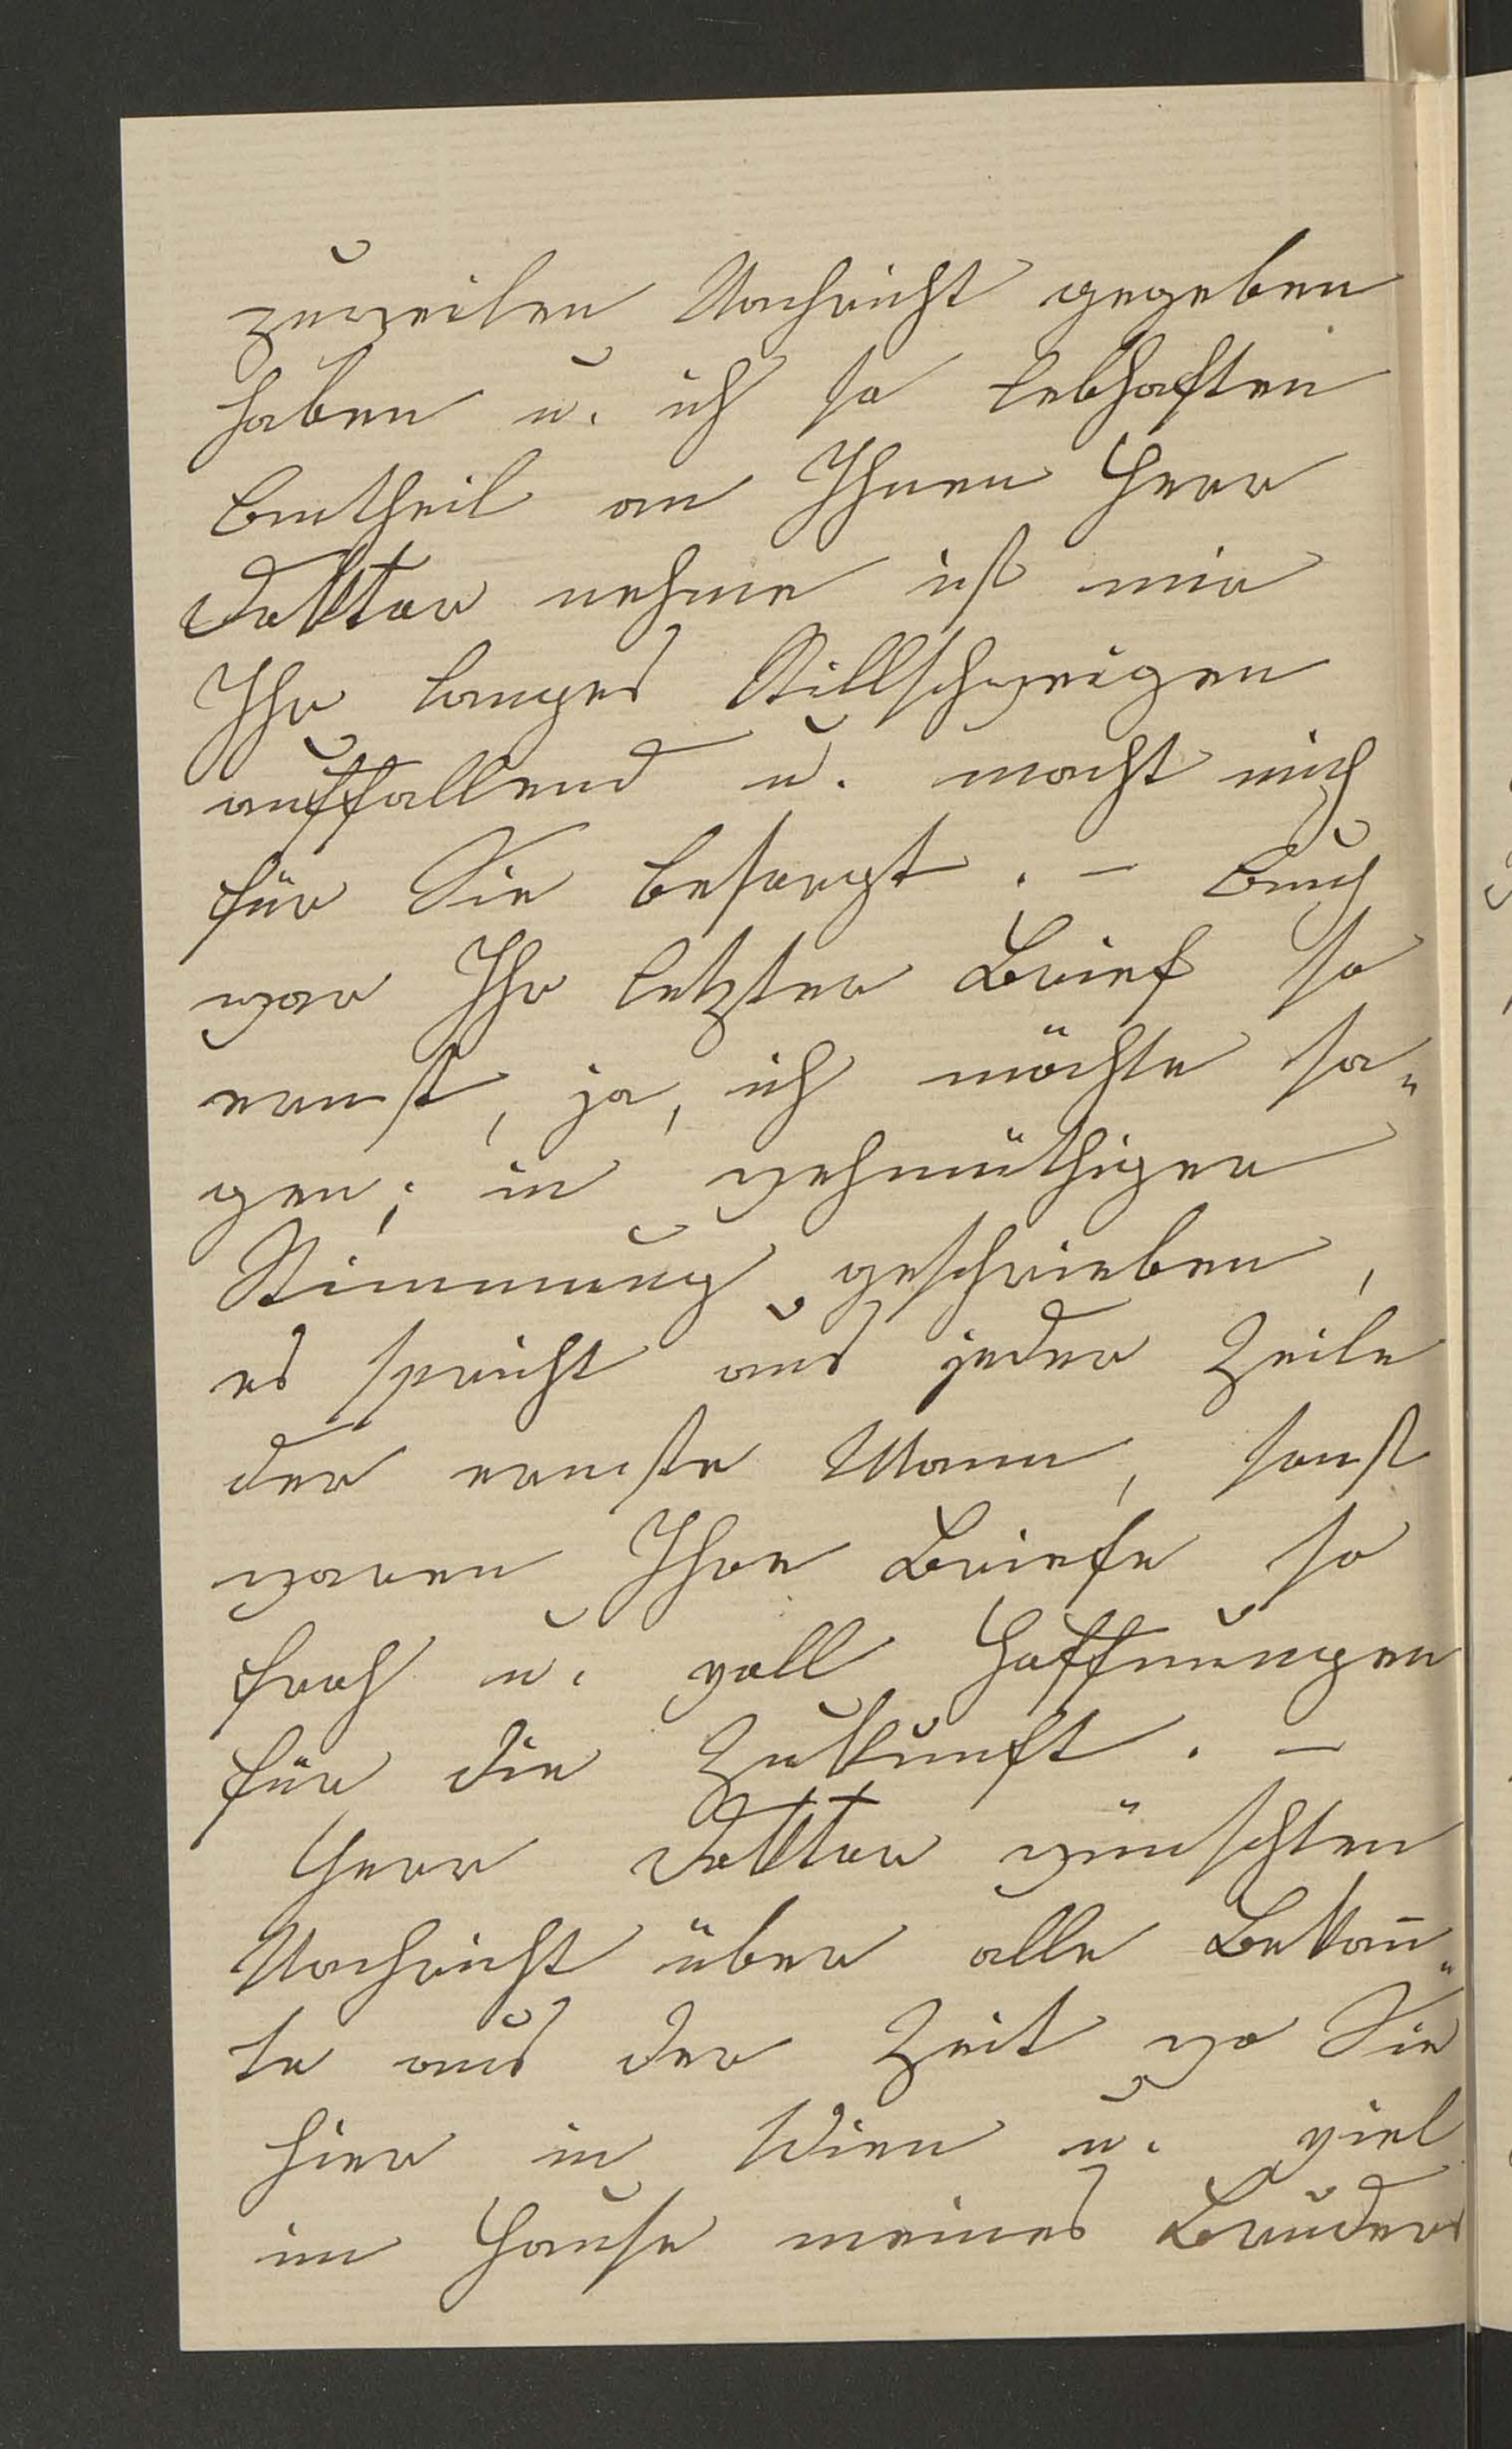 zuweilen Nachricht gegeben
haben u. ich so lebhaften
Antheil an Ihnen Herr
Doktor nehme ist mir
Ihr langes Stillschweigen
auffallend u. macht mich
für Sie besorgt. – Auch
war Ihr letzter Brief so
ernst, ja, ich möchte sa„
gen; in wehmüthiger
Stimmung geschrieben,
es spricht aus jeder Zeile
der ernste Mann, sonst
waren Ihre Briefe so
froh u. voll Hoffnungen
für die Zukunft. –
Herr Doktor wünschten
Nachricht über alle Bekan̅„
te aus der Zeit wo Sie
hier in Wien u. viel
im Hause meines Bruders